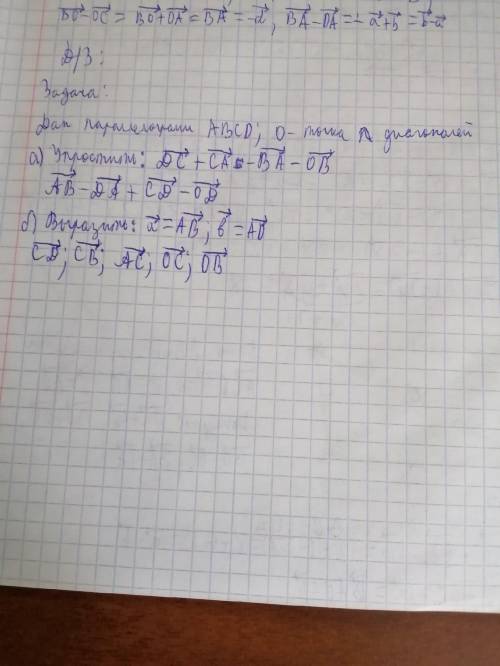 BO⃗-OC⃗ = BO⃗+OA⃗ = BA⃗ = -a⃗, BA⃗-DA⃗ = -a⃗+b⃗ = b⃗-a⃗
Д/З:
Задача:
Дан параллелограмм ABCD; O- точка ∩ диагоналей
а) Упростить: DC⃗ + CA⃗ - BA⃗ - OB⃗
AB⃗ - DA⃗ + CD⃗ - OD⃗
б) Выразить: a⃗ = AB⃗; b⃗ = AD⃗
CD⃗; CB⃗; AC⃗; OC⃗; OB⃗